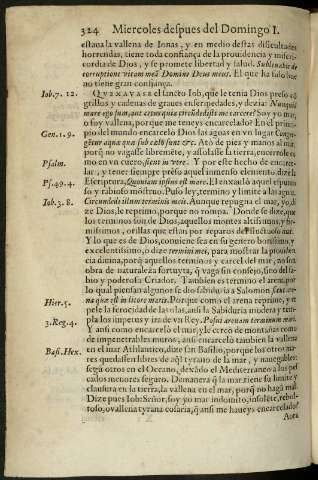 324 Miercoles despues del Domingo I.
estaua la vallena de Ionas, y en medio destas dificultades
horrendas, tiene toda confiança de la prouidencia y miseri-
cordia de Dios, y se promete libertad y salud. Subleuabis de
corruptione vitam meã Domine Deus meus. El que ha sido bue
no tiene gran confiança.
Iob.7.12. QVEXAVASE el sancto Iob, que le tenia Dios preso cõ
grillos y cadenas de graues enfermedades, y dezia: Nunquid
mare ego sum, aut cetus, quia circũdedisti me carcere? Soy yo mar,
o soy vallena, porque me teneys encarcelado? En el princi-
Gen.1.9. pio del mundo encarcelo Dios las aguas en vn lugar Congre
gẽtur aquæ quæ sub cælo sunt &c. Ató de pies y manos al mar,
porq̃ no vagasse libremẽte, y assolasse la tierra, encerrole co
Psalm. mo en vn cuero, sicut in vtre. Y por este hecho de encarce-
lar, y tener siempre preso aquel inmenso elemento, dize la
Ps.94.4. Escriptura, Quoniam ipsius est mare. El enxauló aquel espumo
so y fabioso mostruo. Puso ley, termino y limite a las aguas.
Iob.3.8. Circundedi illum terminis meis. Aunque repugna el mar, yo, di
ze Dios, le reprimo, porque no rompa. Donde se dize, que
los terminos son de Dios, aquellos montes altissimos, y fir-
missimos, orillas que estan por reparos del fluctuoso mar.
Y lo que es de Dios, conuiene sea en su genero bonissimo, y
excelentissimo, o dize termini mei, para mostrar la prouiden
cia diuina, porq̃ aquellos terminos y carcel del mar, no son
obra de naturaleza fortuyta, q̃ vaga sin consejo, sino del sa-
bio y poderoso Criador. Tambien es termino el arena, por
lo qual piensan algunos se dio sabiduria a Salomon sicut are-
Hier.5. na quæ est in litore maris. Porque como el arena reprime, y rõ
pe la ferocidad de las olas, ansi la Sabiduria modera y tem-
3.Reg.4. pla los impetus y ira de vn Rey. Posui arenam terminum mari.
Y ansi como encarceló el mar, y le cerco de montañas como
de impenetrables muros, ansi encarceló tambien la vallena
Basi.Hex. en el mar Athlantico, dize san Basilio, porque los otros ma-
res quedassen libres de aq̃l tyrano de la mar, y nauegables:
segũ otros en el Oceano, dexãdo el Mediterraneo a los pes
cados menores seguro. Demanera q̃ la mar tiene su limite y
clausura en la tierra, la vallena en la mar, porq̃ no haga mal.
Dize pues Iob: Señor, soy yo mar indomito, insolẽte, rebol-
toso, o vallena tyrana cosaria, q̃ ansi me haueys encarcelado?
Aora